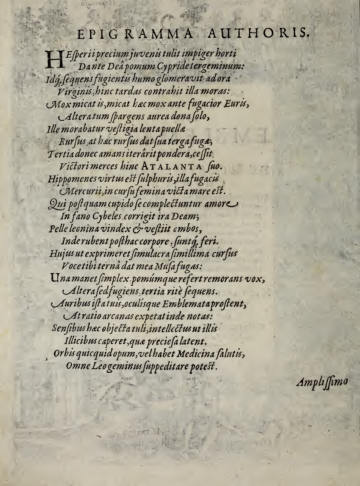 EPIGRAMMA AUTHORIS.
HEsperii precium juvenis tulit impiger horti
Dante Deâ pomum Cypride tergeminum:
Idq́, sequens fugientis humo glomeravit ad ora
Virginis, hinc tardas contrahit illa moras:
Mox micat is, micat hæc mox ante fugacior Euris,
Alteratum spargens aurea dona solo,
Ille morabatur vestigia lenta puellæ
Rursus, at hæc rursus dat sua terga fugæ;
Tertia donec amans iterârit pondera, cessit
Victori merces hinc ATALANTA suo.
Hippomenes virtus est sulphuris, illa fugacis
Mercurii, in cursu femina victa mare est.
Qui postquam cupido se complectuntur amore
In fano Cybeles corrigit ira Deam;
Pelle leonina vindex & vestiit ambos,
Inde rubent posthac corpore, suntq́, feri.
Hujus ut exprimeret simulacra simillima cursus
Voce tibi ternâ dat mea Musa fugas:
Una manet simplex pomúmque refert remorans vox,
Altera sed fugiens, tertia ritè sequens.
Auribus ista tuis, oculisque Emblemata prostent,
At ratio arcanas expetat inde notas:
Sensibus hæc objecta tuli, intellectus ut illis
Illicibus caperet, quæ preciosa latent.
Orbis quicquid opum, vel habet Medicina salutis,
Omne Leo geminus suppeditare potest.
Amplissimo